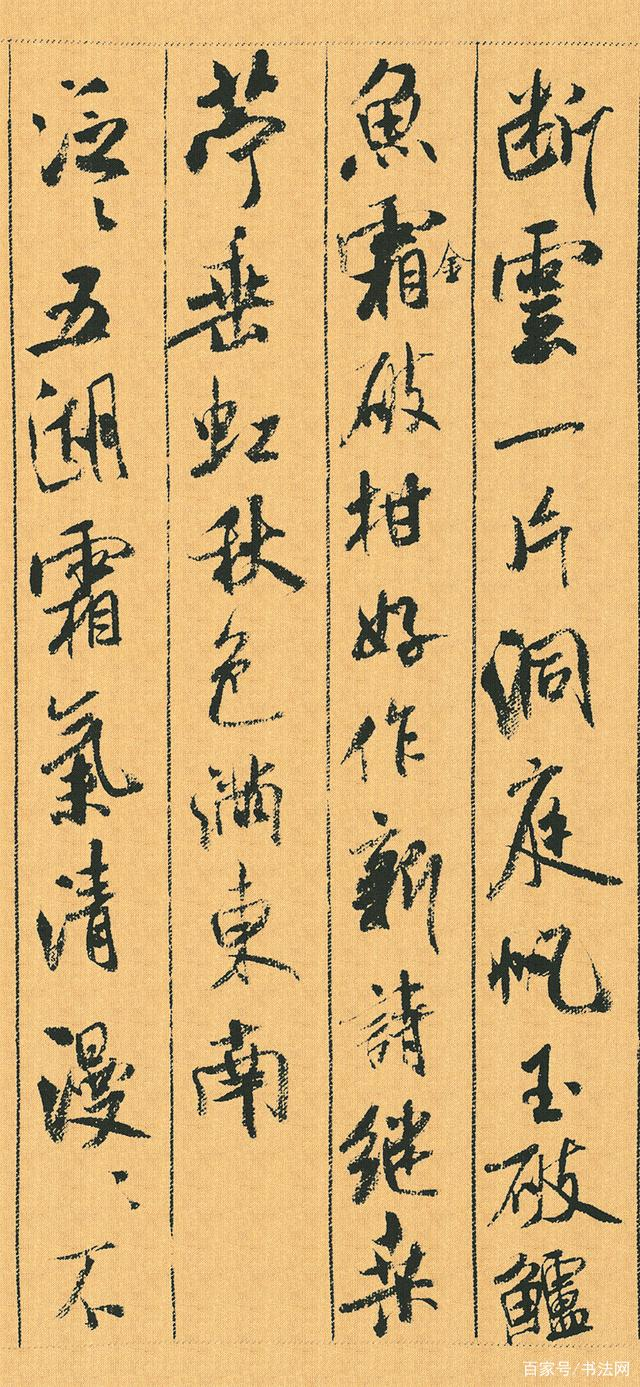 断雲一片洞庭帆玉破鱸
魚霜破柑好作新詩継桒
金
苧垂虹秋色満東南
泛〻五湖霜氣清漫〻不
百家号/书法网